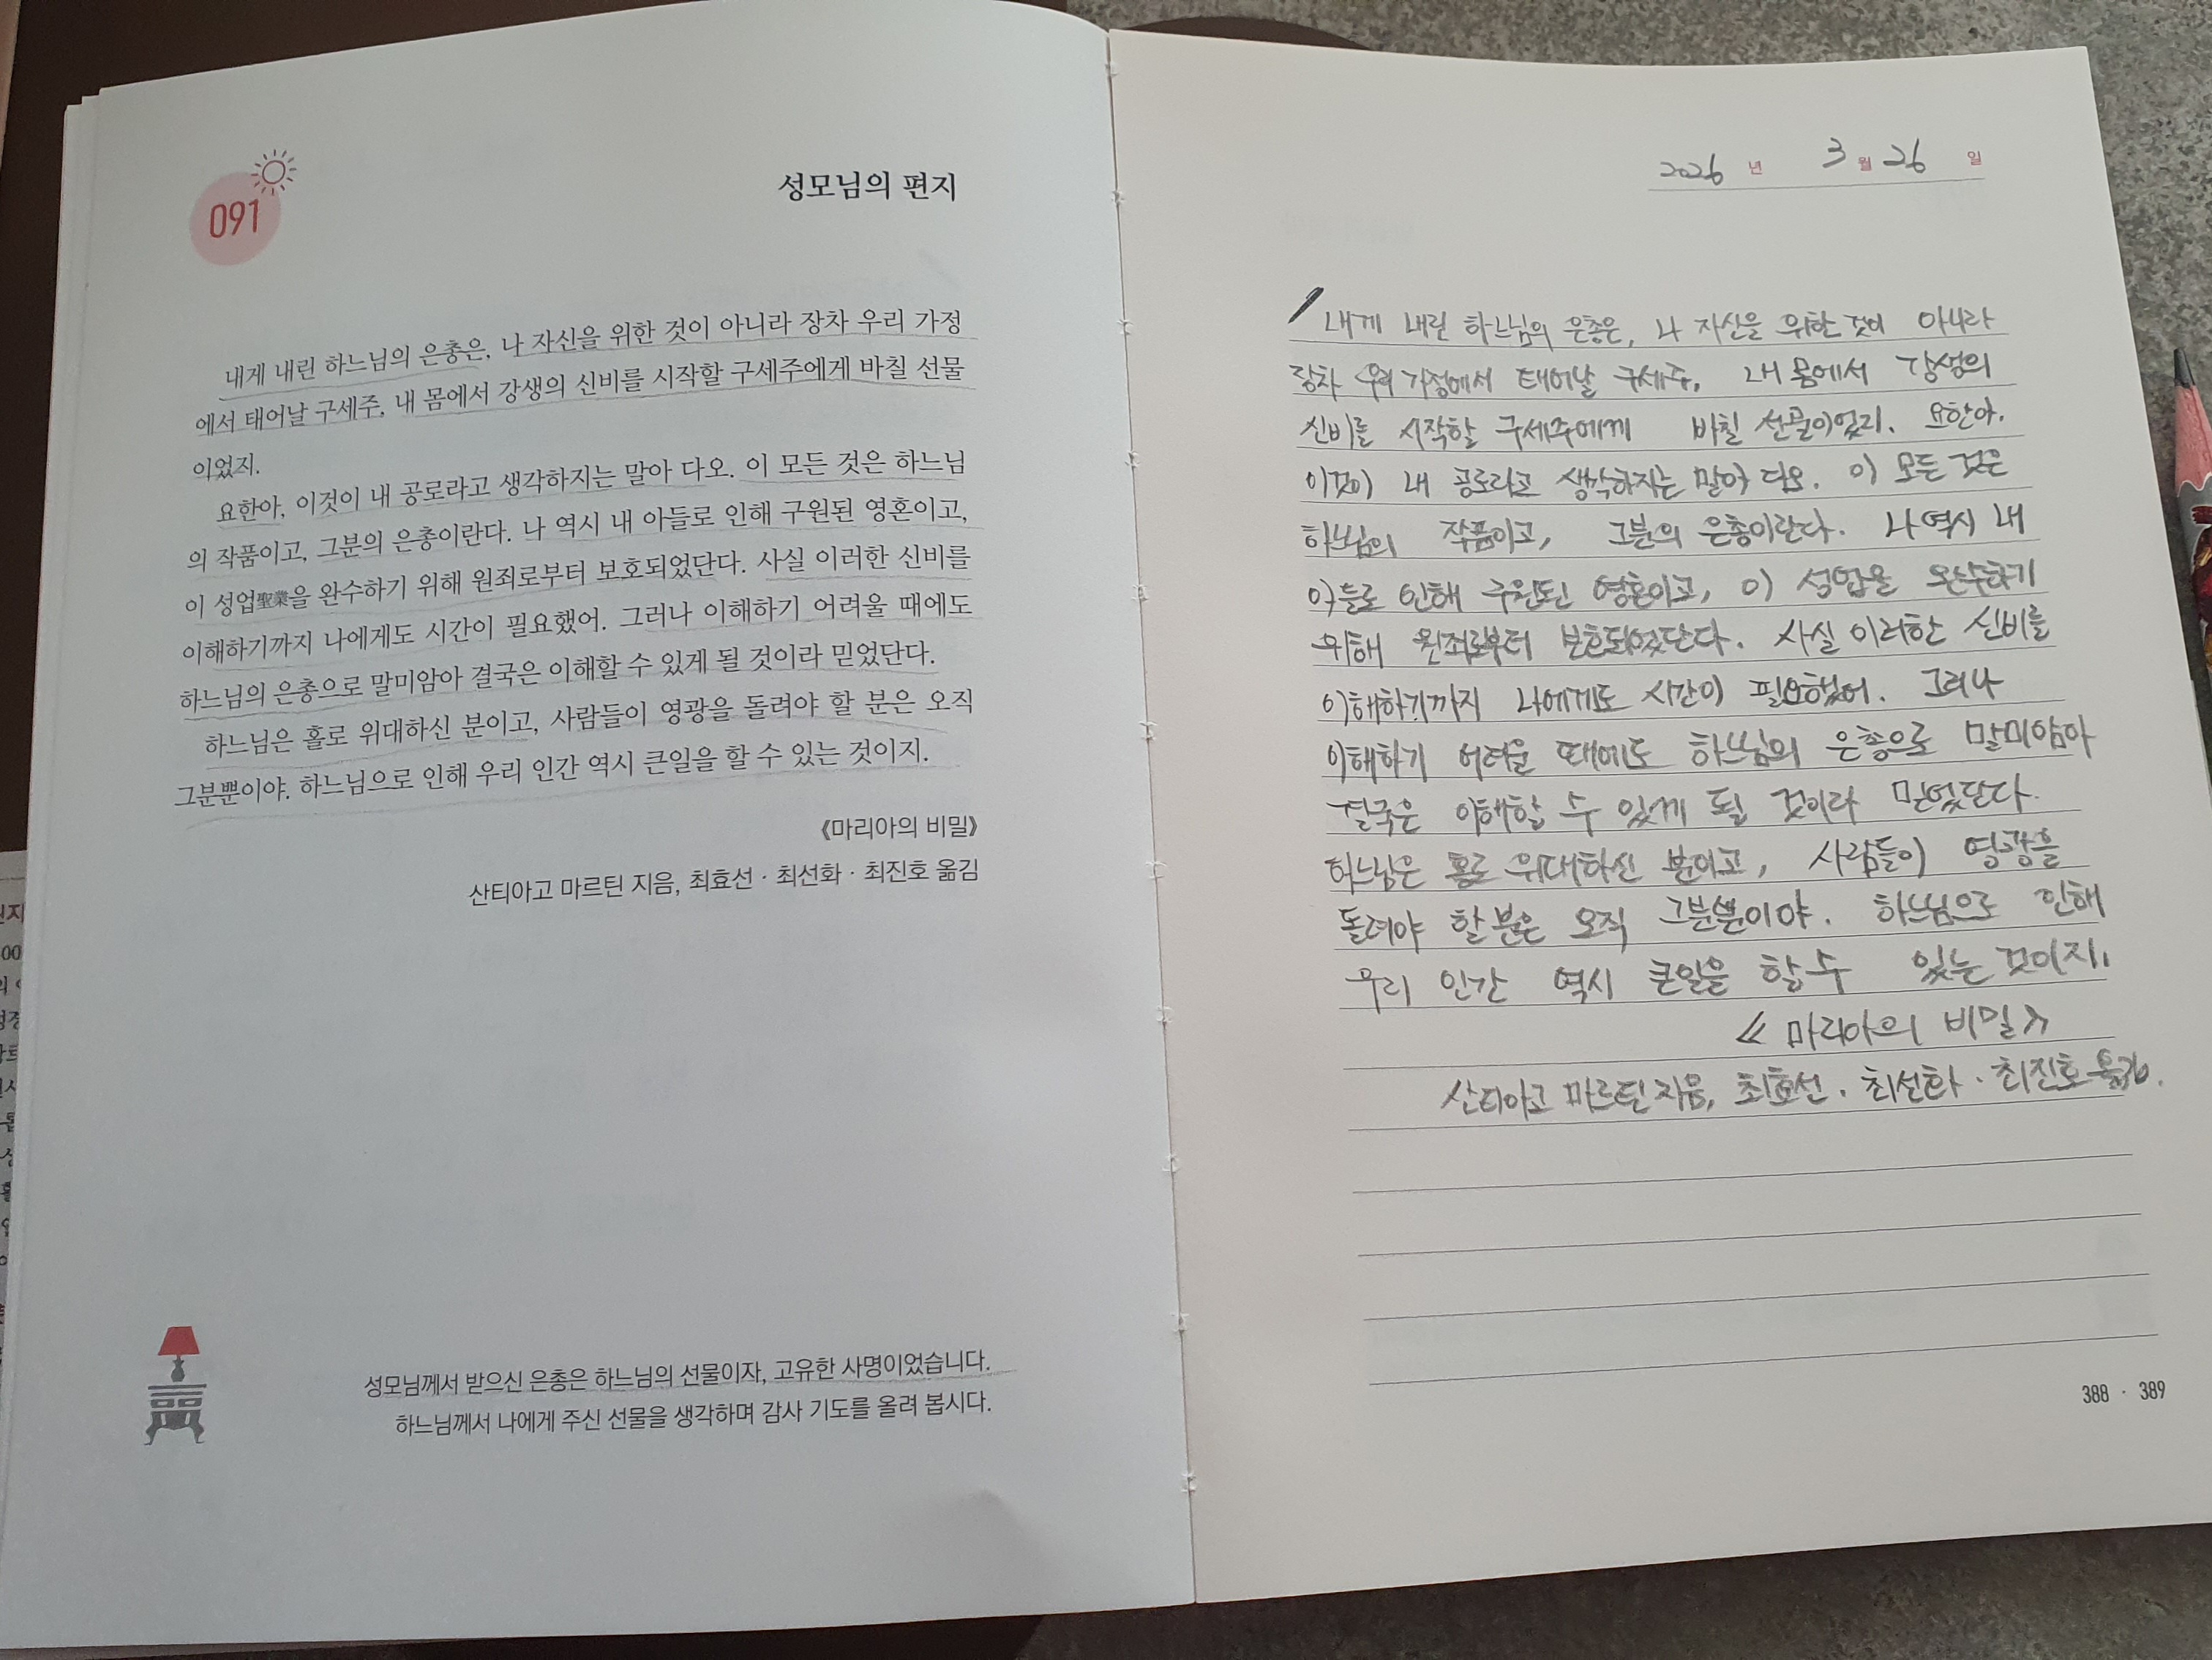 091
성모님의 편지
내게 내린 하느님의 은총은, 나 자신을 위한 것이 아니라 장차 우리 가정
에서 태어날 구세주, 내 몸에서 강생의 신비를 시작할 구세주에게 바칠 선물
이었지.
요한아, 이것이 내 공로라고 생각하지는 말아 다오. 이 모든 것은 하느님
의 작품이고, 그분의 은총이란다. 나 역시 내 아들로 인해 구원된 영혼이고,
이 성업聖業을 완수하기 위해 원죄로부터 보호되었단다. 사실 이러한 신비를
이해하기까지 나에게도 시간이 필요했어. 그러나 이해하기 어려울 때에도
하느님의 은총으로 말미암아 결국은 이해할 수 있게 될 것이라 믿었단다.
하느님은 홀로 위대하신 분이고, 사람들이 영광을 돌려야 할 분은 오직
그분뿐이야. 하느님으로 인해 우리 인간 역시 큰일을 할 수 있는 것이지.
《마리아의 비밀》
산티아고 마르틴 지음, 최효선 · 최선화 · 최진호 옮김
성모님께서 받으신 은총은 하느님의 선물이자, 고유한 사명이었습니다.
하느님께서 나에게 주신 선물을 생각하며 감사 기도를 올려 봅시다.
2026 년 3 월 26 일
내게 내린 하느님의 은총은, 나 자신을 위한 것이 아니라
장차 우리 가정에서 태어날 구세주, 내 몸에서 강생의
신비를 시작할 구세주에게 바칠 선물이었지. 요한아,
이것이 내 공로라고 생각하지는 말아 다오. 이 모든 것은
하느님의 작품이고, 그분의 은총이란다. 나 역시 내
아들로 인해 구원된 영혼이고, 이 성업을 완수하기
위해 원죄로부터 보호되었단다. 사실 이러한 신비를
이해하기까지 나에게도 시간이 필요했어. 그러나
이해하기 어려울 때에도 하느님의 은총으로 말미암아
결국은 이해할 수 있게 될 것이라 믿었단다.
하느님은 홀로 위대하신 분이고, 사람들이 영광을
돌려야 할 분은 오직 그분뿐이야. 하느님으로 인해
우리 인간 역시 큰일을 할 수 있는 것이지.
《마리아의 비밀》
산티아고 마르틴 지음, 최효선 · 최선화 · 최진호 옮김.
388 · 389